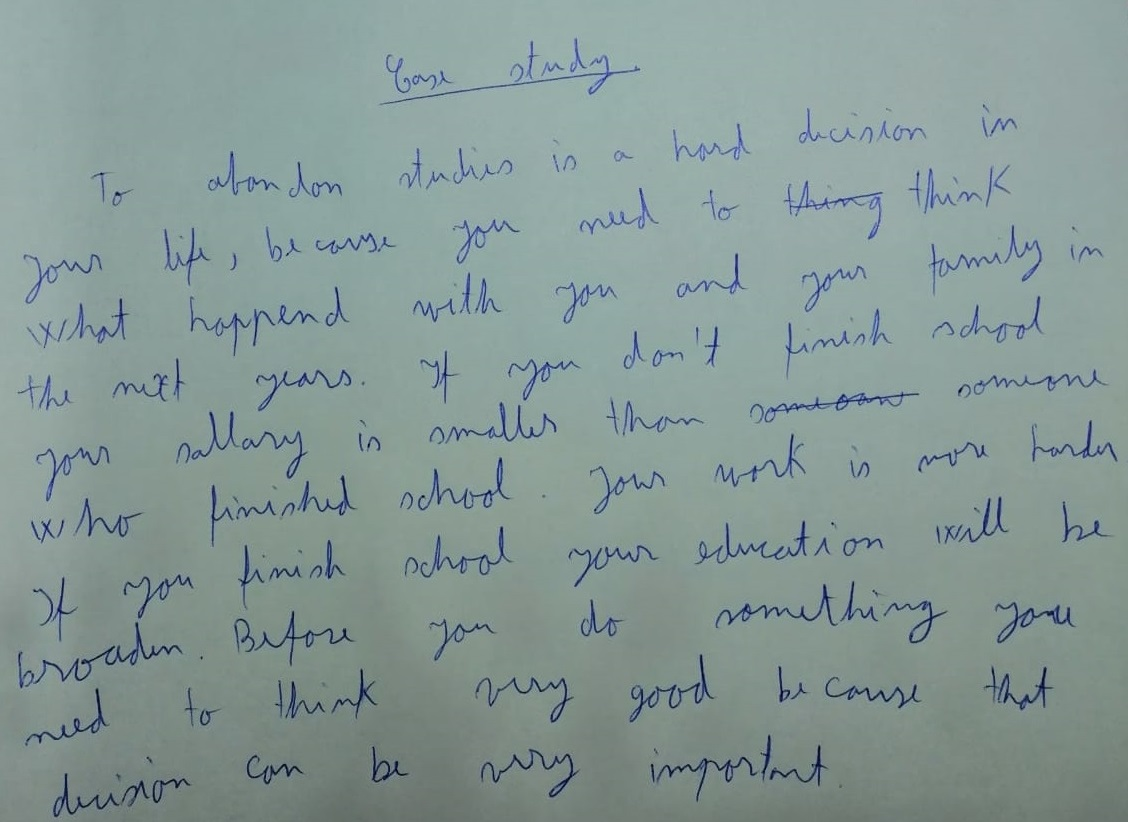 Case study.
To abandon studies is a hard decision in
your life, because you need to thing think
what happend with you and your family in
the next years. If you don't finish school
your sallary is smaller than someone
who finished school. Your work is more harder
If you finish school your education will be
broaden. Before you do something you
need to think very good because that
decision can be very important.